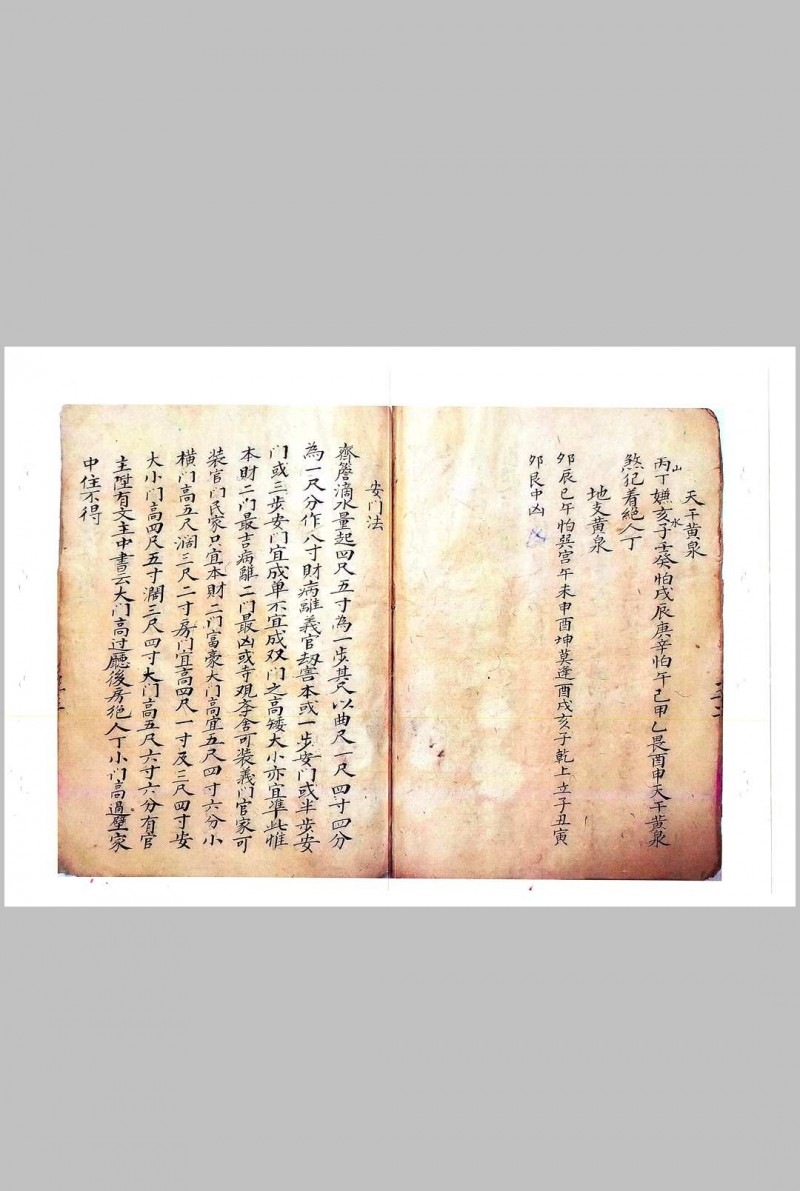 天干黄泉
丙丁嫌亥子壬癸怕戌辰庚辛怕午己甲乙畏酉申天干黄泉
山
水
煞犯着絕人丁
地支黄泉
卯辰巳午怕巽宫午未申酉坤莫逢酉戌亥子乾上立子丑寅
卯艮中凶
安门法
齊簷滴水量起四尺五寸為一步其尺以曲尺一尺四寸四分
為一尺分作八寸財病離義官劫害本或一步安门或半步安
门或三步安门宜成单不宜成双门之高矮大小亦宜準此惟
本財二门最吉病離二门最凶或寺观斈舍可装義门官家可
装官门民家只宜本財二门富豪大门高宜五尺四寸六分小
横门高五尺濶三尺二寸房门宜高四尺一寸及三尺四寸安
大小门高四尺五寸濶三尺四寸大门高五尺六寸六分有官
主陞有文主中書云大门高过廳後房絕人丁小门高過壁家
中住不得